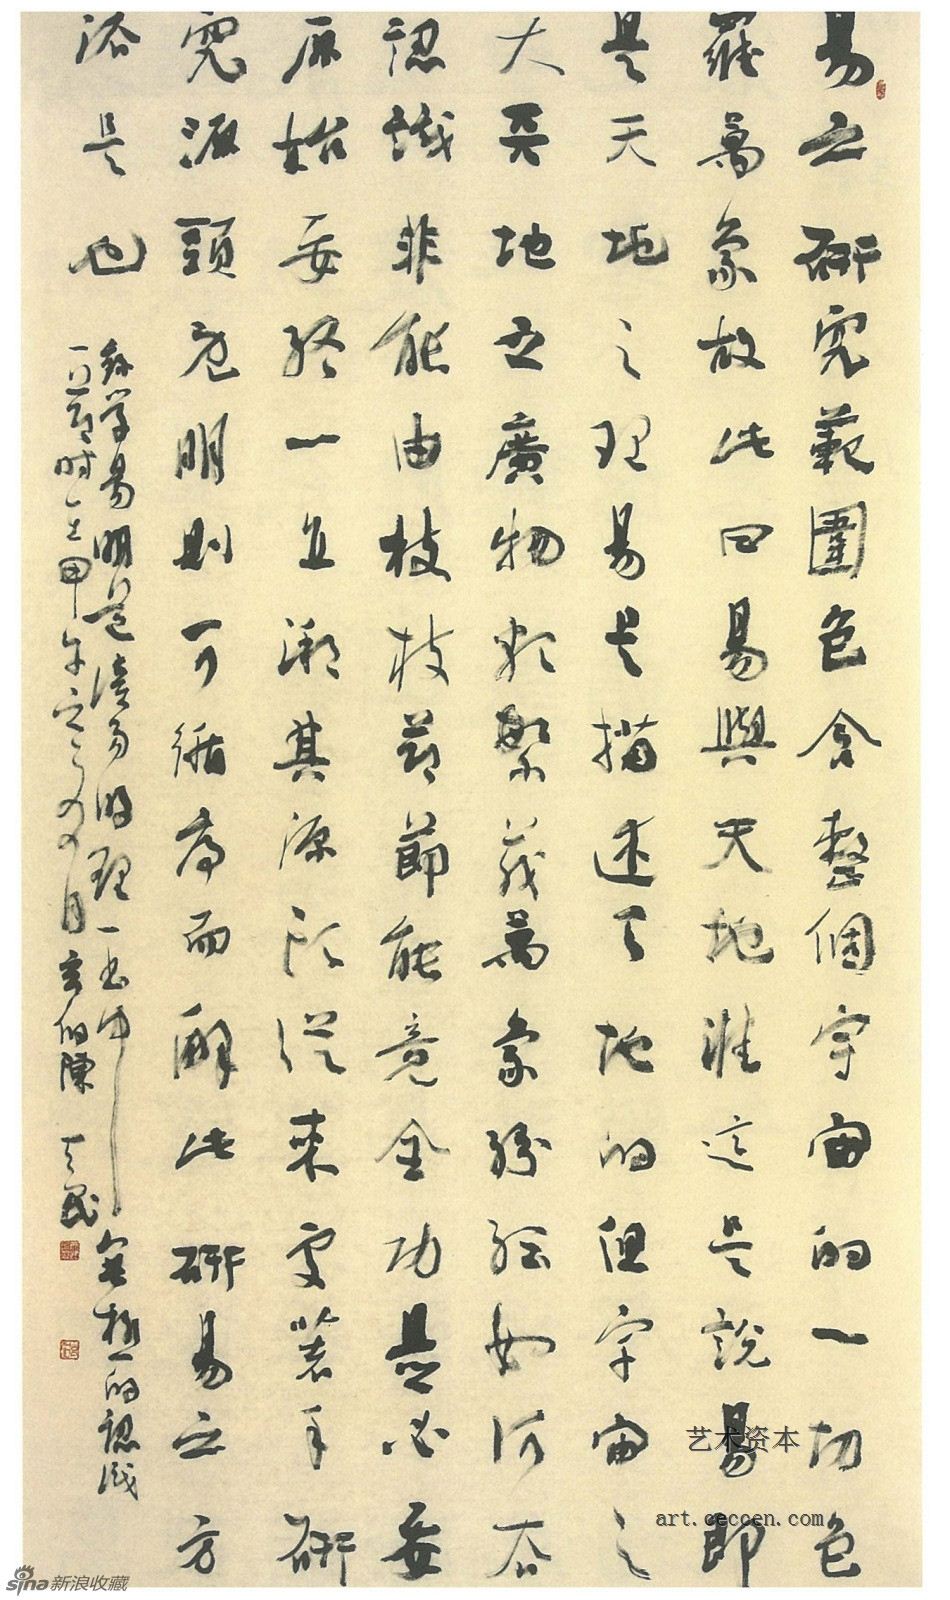 易之研究範圍包含整個宇宙的一切包
羅萬象故此曰易與天地准這是說易即
是天地之理易是描述天地的但宇宙之
大與地之廣物類繁茂萬象紛紜如何去
認識非能由枝枝節節能竟全功是必要
原始要終一直溯其源頭從來處著手研
究源頭愈明則可循序而解此研易之方
法是也
錄學易明道 易明理一書中 無極的認識
一節時在甲午之 月 陳天民
艺术资本
art.ceccen.com
sina新浪收藏